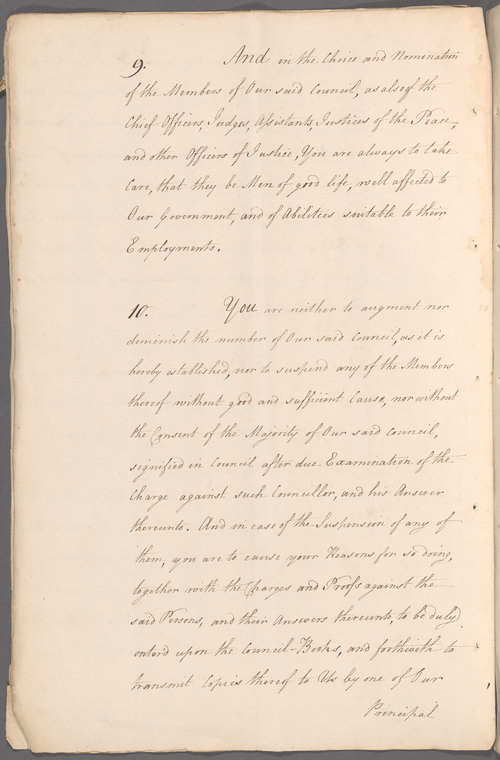 9. And in the Choice and Nomination
of the Members of Our said Council, as also of the
Chief Officers, Judges, Assistants, Justices of the Peace,
and other Officers of Justice, You are always to take
Care, that they be Men of good life, well affected to
Our Government, and of Abilities suitable to their
Employments.
10. You are neither to augment nor
diminish the number of Our said Council, as it is
hereby established, nor to suspend any of the Members
thereof without good and sufficient Cause, nor without
the Consent of the Majority of Our said Council,
signified in Council after due Examination of the
Charge against such Councillor, and his Answer
thereunto. And in case of the Suspension of any of
them, you are to cause your Reasons for so doing,
together with the Charges and Proofs against the
said Persons, and their Answers thereunto, to be duly
enter'd upon the Council-Books, and forthwith to
transmit Copies thereof to Us by one of Our
Principal